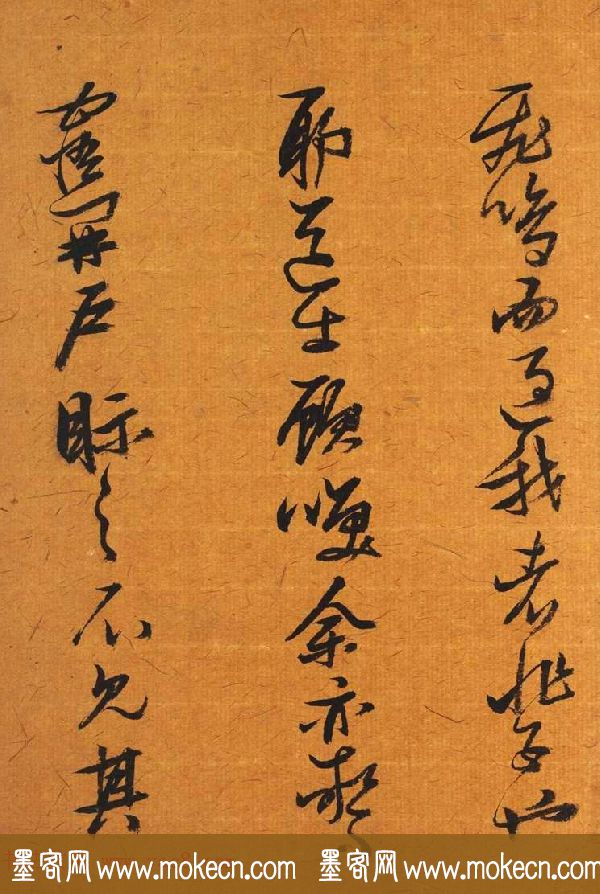 飛鳴而過我者非子也
耶道士顧咲余亦驚
寤開戶眎之不見其
墨客网 www.mokecn.com 墨客网 www.mokecn.com